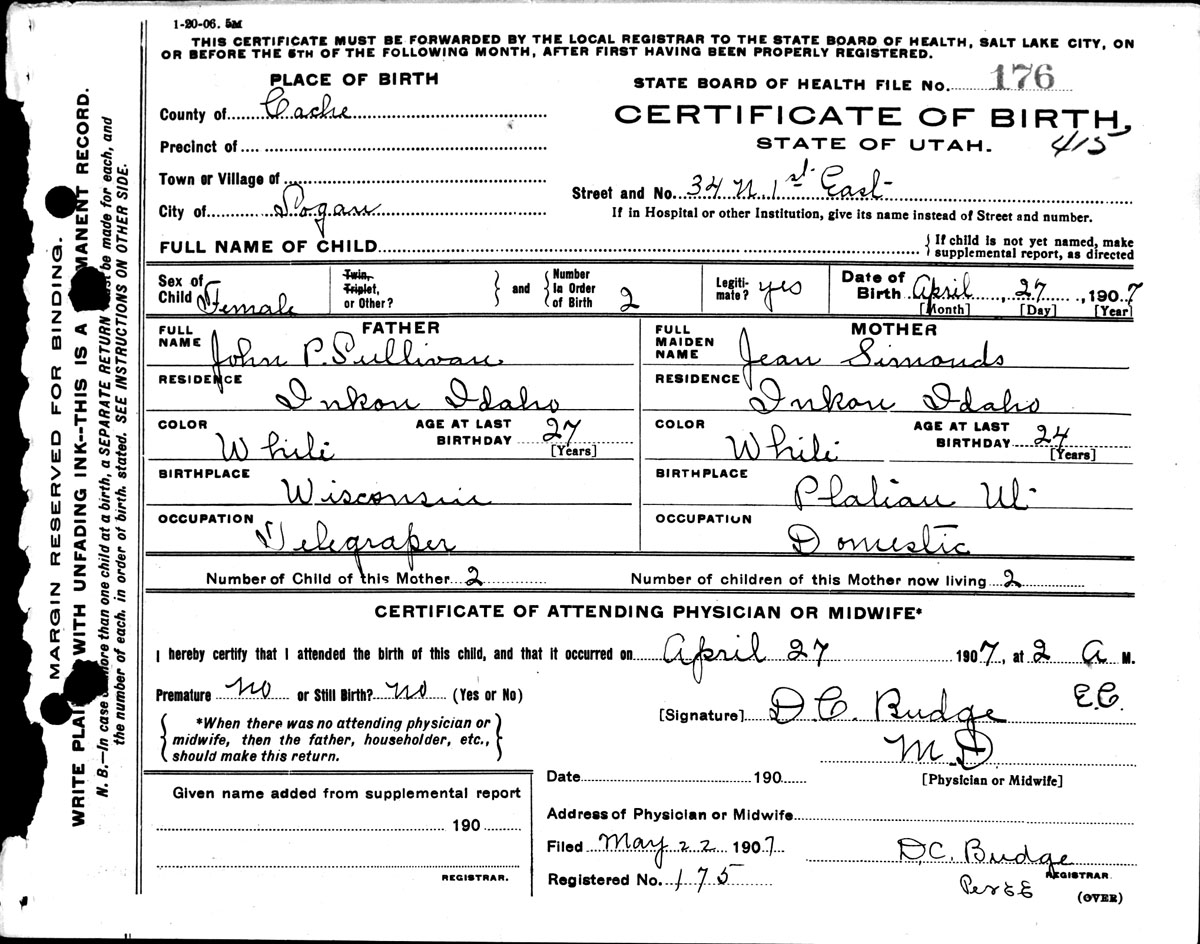 1-20-06. 5M
THIS CERTIFICATE MUST BE FORWARDED BY THE LOCAL REGISTRAR TO THE STATE BOARD OF HEALTH, SALT LAKE CITY, ON
OR BEFORE THE 5TH OF THE FOLLOWING MONTH, AFTER FIRST HAVING BEEN PROPERLY REGISTERED.
PLACE OF BIRTH
STATE BOARD OF HEALTH FILE No. 176
County of Cache
CERTIFICATE OF BIRTH,
Precinct of
STATE OF UTAH. 415
Town or Village of
Street and No. 34 N. 1st. East
City of Logan
If in Hospital or other Institution, give its name instead of Street and number.
FULL NAME OF CHILD
{ If child is not yet named, make
supplemental report, as directed
Sex of Child Female
Twin, Triplet, or Other?
} and {
Number In Order of Birth 2
Legiti-mate? yes
Date of Birth April, 27, 1907
[Month] [Day] [Year]
FATHER
FULL NAME John P. Sullivan
RESIDENCE Inkom Idaho
COLOR White
AGE AT LAST BIRTHDAY 27
[Years]
BIRTHPLACE Wisconsin
OCCUPATION Telegraper
MOTHER
FULL MAIDEN NAME Jean Simonds
RESIDENCE Inkom Idaho
COLOR White
AGE AT LAST BIRTHDAY 24
[Years]
BIRTHPLACE
OCCUPATION Domestic
Number of Child of this Mother 2
Number of children of this Mother now living 2
CERTIFICATE OF ATTENDING PHYSICIAN OR MIDWIFE*
I hereby certify that I attended the birth of this child, and that it occurred on April 27 1907, at 2 A M.
Premature No or Still Birth? No (Yes or No)
{ *When there was no attending physician or
midwife, then the father, householder, etc.,
should make this return. }
[Signature] D C. Budge E.C.
M.D
[Physician or Midwife]
Date 190
Given name added from supplemental report
190
REGISTRAR.
Address of Physician or Midwife
Filed May 22 1907
D.C. Budge
REGISTRAR
Registered No. 175
Per EE
(OVER)
MARGIN RESERVED FOR BINDING.
WRITE PLAI WITH UNFADING INK--THIS IS A MANENT RECORD.
N. B.—In case more than one child at a birth, a SEPARATE RETURN be made for each, and
the number of each, in order of birth, stated. SEE INSTRUCTIONS ON OTHER SIDE.